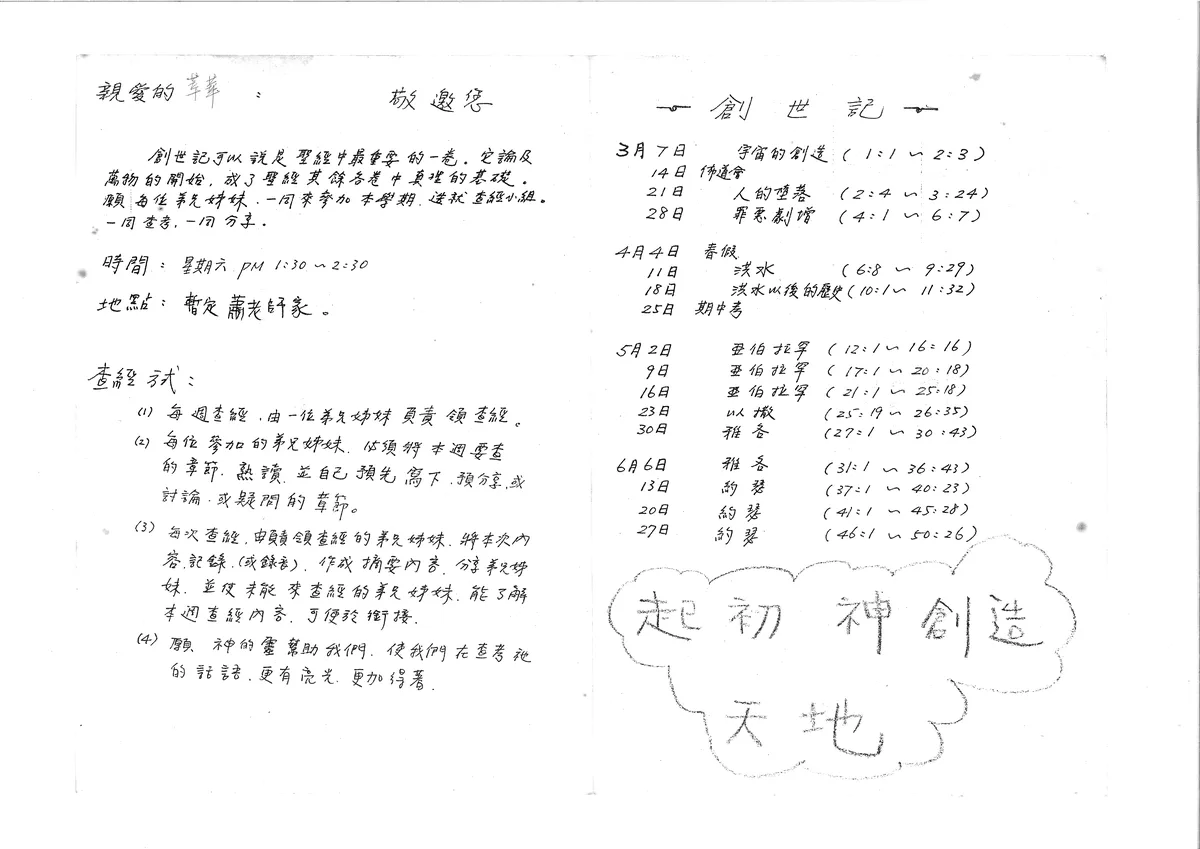 親愛的 華華 :
敬邀您
創世記可以說是聖經中最重要的一卷。它論及
萬物的開始,成了聖經其餘各卷中真理的基礎。
願每位弟兄姊妹,一同來參加本學期,造就查經小組。
一同查考,一同分享。
時間: 星期六 PM 1:30~2:30
地點: 暫定蕭老師家。
查經方式:
(1) 每週查經,由一位弟兄姊妹負責領查經。
(2) 每位參加的弟兄姊妹,必須將本週要查
的章節,熟讀,並自己預先寫下,預分享,或
討論,或疑問的章節。
(3) 每次查經,由負責領查經的弟兄姊妹,將本次內
容,記錄,(或錄音),作成摘要內容,分享弟兄姊
妹,並使未能來查經的弟兄姊妹,能了解
本週查經內容,可便於銜接.
(4) 願 神的靈幫助我們,使我們在查考祂
的話語,更有亮光,更加得著.
創世記
3月7日 宇宙的創造 (1:1~2:3)
14日 佈道會
21日 人的墮落 (2:4~3:24)
28日 罪惡劇增 (4:1~6:7)
4月4日 春假
11日 洪水 (6:8~9:29)
18日 洪水以後的歷史(10:1~11:32)
25日 期中考
5月2日 亞伯拉罕 (12:1~16:16)
9日 亞伯拉罕 (17:1~20:18)
16日 亞伯拉罕 (21:1~25:18)
23日 以撒 (25:19~26:35)
30日 雅各 (27:1~30:43)
6月6日 雅各 (31:1~36:43)
13日 約瑟 (37:1~40:23)
20日 約瑟 (41:1~45:28)
27日 約瑟 (46:1~50:26)
起初 神創造
天地